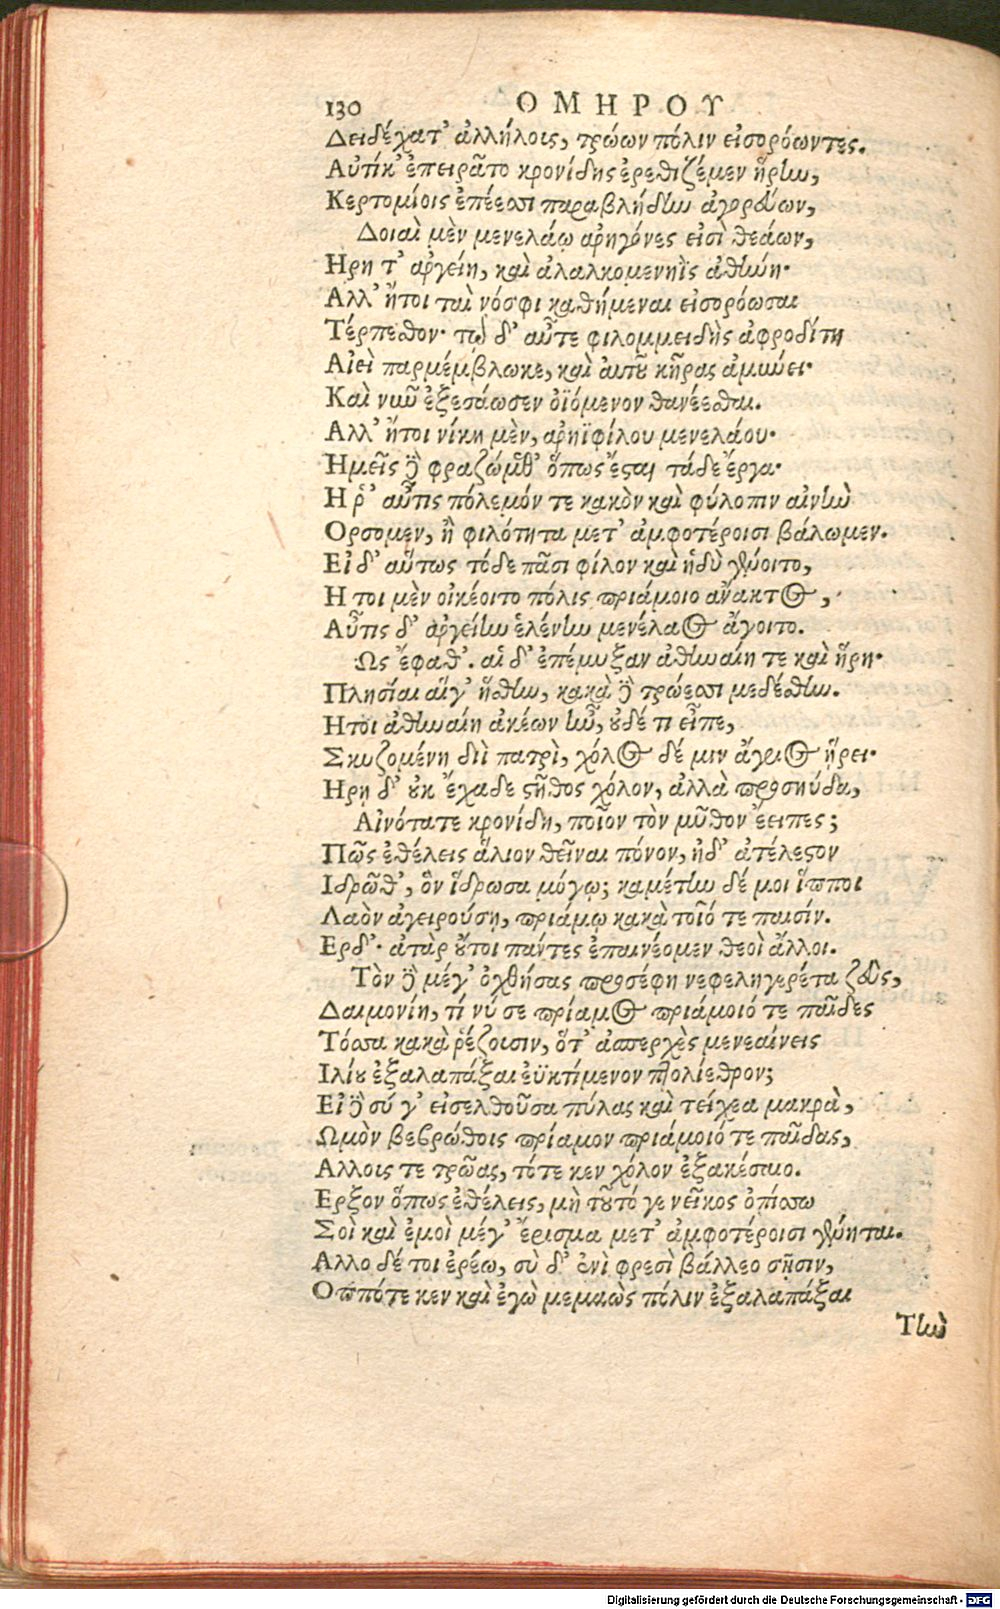 130 ΟΜΗΡΟΥ
Δειδέχατ' ἀλλήλοις, τρώων πόλιν εἰσορόωντες.
Αὐτίκ' ἐπειρᾶτο κρονίδης ἐρεθιζέμεν ἥρην,
Κερτομίοις ἐπέεσσι παραβλήδην ἀγορεύων,
Δοιαὶ μὲν μενελάῳ ἀρηγόνες εἰσὶ θεάων,
Ηρη τ' ἀργείη, καὶ ἀλαλκομενηῒς ἀθήνη·
Αλλ' ἤτοι ταὶ νόσφι καθήμεναι εἰσορόωσαι
Τέρπεσθον· τῷ δ' αὖτε φιλομμειδὴς ἀφροδίτη
Αἰεὶ παρμέμβλωκε, καὶ αὐτοῦ κῆρας ἀμύνει·
Καὶ νῦν ἐξεσάωσεν ὀϊόμενον θανέεσθαι.
Αλλ' ἤτοι νίκη μὲν, ἀρηϊφίλου μενελάου·
Ἡμεῖς δὲ φραζώμεθ' ὅπως ἔσται τάδε ἔργα·
Η ῥ' αὖτις πόλεμόν τε κακὸν καὶ φύλοπιν αἰνὴν
Ορσομεν, ἢ φιλότητα μετ' ἀμφοτέροισι βάλωμεν.
Εἰ δ' αὕτως τόδε πᾶσι φίλον καὶ ἡδὺ γένοιτο,
Η τοι μὲν οἰκέοιτο πόλις πριάμοιο ἄνακτος,
Αὖτις δ' ἀργείην ἑλένην μενέλαος ἄγοιτο.
Ως ἔφαθ'. αἱ δ' ἐπέμυξαν ἀθηναίη τε καὶ ἥρη·
Πλησίαι αἵγ' ἥσθην, κακὰ δὲ τρώεσσι μεδέσθην.
Ητοι ἀθηναίη ἀκέων ἦν, οὐδέ τι εἶπε,
Σκυζομένη διῒ πατρὶ, χόλος δέ μιν ἄγριος ᾕρει·
Ηρῃ δ' οὐκ ἔχαδε στῆθος χόλον, ἀλλὰ προσηύδα,
Αἰνότατε κρονίδη, ποῖον τὸν μῦθον ἔειπες;
Πῶς ἐθέλεις ἅλιον θεῖναι πόνον, ἠδ' ἀτέλεστον
Ιδρῶθ', ὃν ἵδρωσα μόγῳ; καμέτην δέ μοι ἵπποι
Λαὸν ἀγειρούσῃ, πριάμῳ κακὰ τοῖό τε παισίν.
Ερδ'· ἀτὰρ οὔτοι πάντες ἐπαινέομεν θεοὶ ἄλλοι.
Τὸν δὲ μέγ' ὀχθήσας προσέφη νεφεληγερέτα ζεὺς,
Δαιμονίη, τί νύ σε πρίαμος πριάμοιό τε παῖδες
Τόσσα κακὰ ῥέζουσιν, ὅτ' ἀσπερχὲς μενεαίνεις
Ιλίου ἐξαλαπάξαι ἐϋκτίμενον πτολίεθρον;
Εἰ δὲ σύ γ' εἰσελθοῦσα πύλας καὶ τείχεα μακρὰ,
Ωμὸν βεβρώθοις πρίαμον πριάμοιό τε παῖδας,
Αλλους τε τρῶας, τότε κεν χόλον ἐξακέσαιο.
Ερξον ὅπως ἐθέλεις, μὴ τοῦτό γε νεῖκος ὀπίσσω
Σοὶ καὶ ἐμοὶ μέγ' ἔρισμα μετ' ἀμφοτέροισι γένηται.
Αλλο δέ τοι ἐρέω, σὺ δ' ἐνὶ φρεσὶ βάλλεο σῇσιν,
Οππότε κεν καὶ ἐγὼ μεμαὼς πόλιν ἐξαλαπάξαι
Τὴν
Digitalisierung gefördert durch die Deutsche Forschungsgemeinschaft - DFG